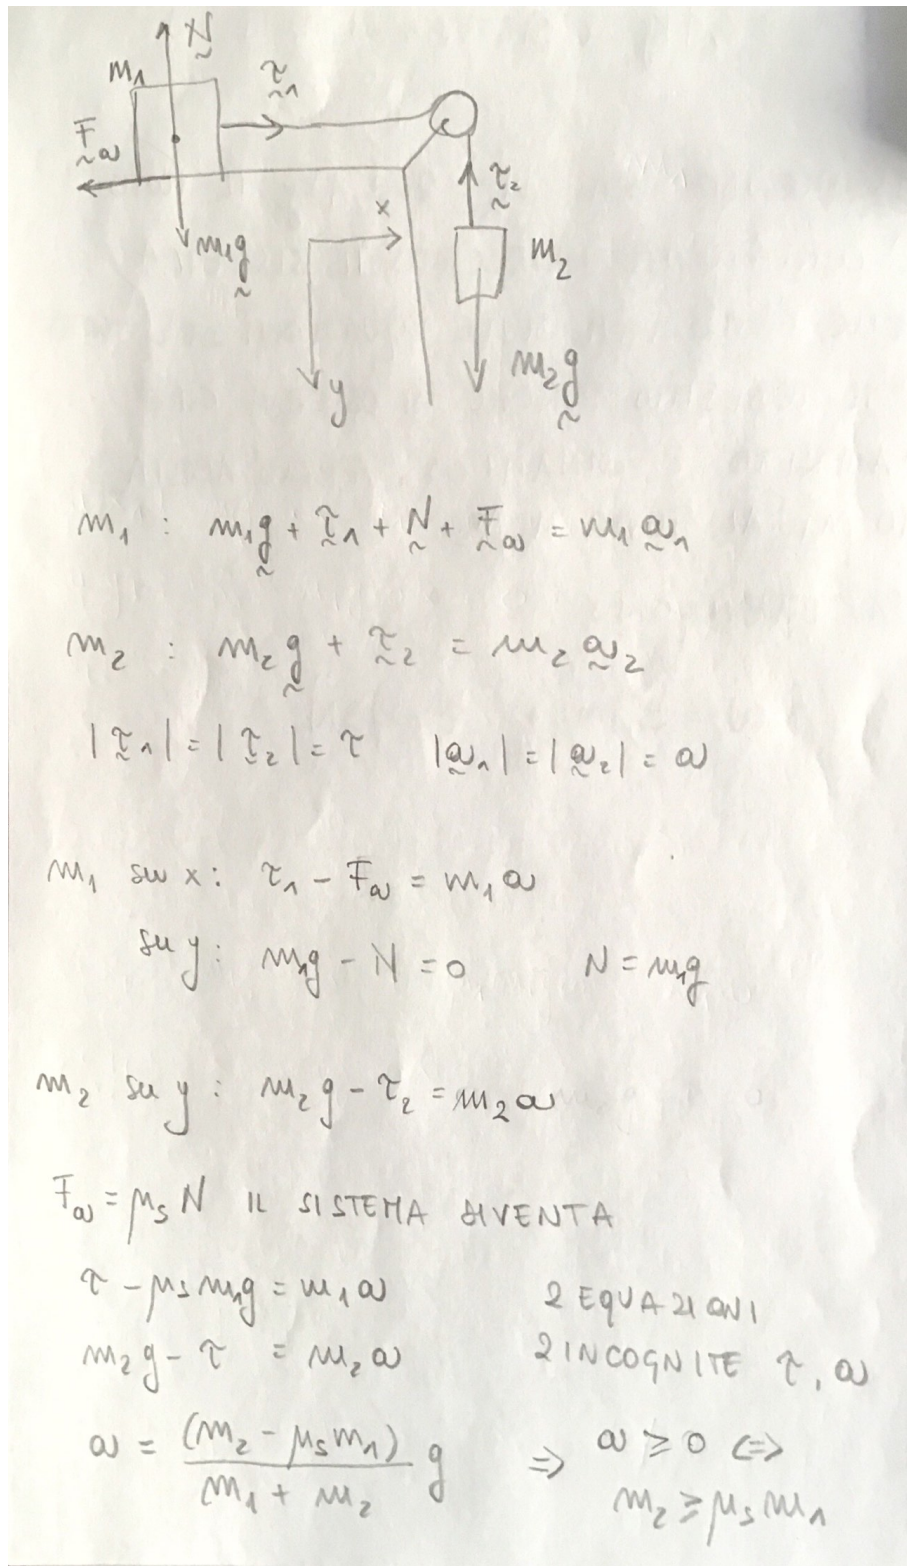 N
m₁
τ₁
Fa
m₁g
x
τ₂
m₂
m₂g
y
m₁ : m₁g + τ₁ + N + Fa = m₁ a₁
m₂ : m₂g + τ₂ = m₂ a₂
|τ₁| = |τ₂| = τ |a₁| = |a₂| = a
m₁ su x: τ₁ - Fa = m₁a
su y: m₁g - N = 0 N = m₁g
m₂ su y: m₂g - τ₂ = m₂a
Fa = μs N IL SISTEMA DIVENTA
τ - μs m₁g = m₁a 2 EQUAZIONI
m₂g - τ = m₂a 2 INCOGNITE τ, a
a = (m₂ - μs m₁) / (m₁ + m₂) g ⇒ a ≥ 0 ⇔
m₂ ≥ μs m₁